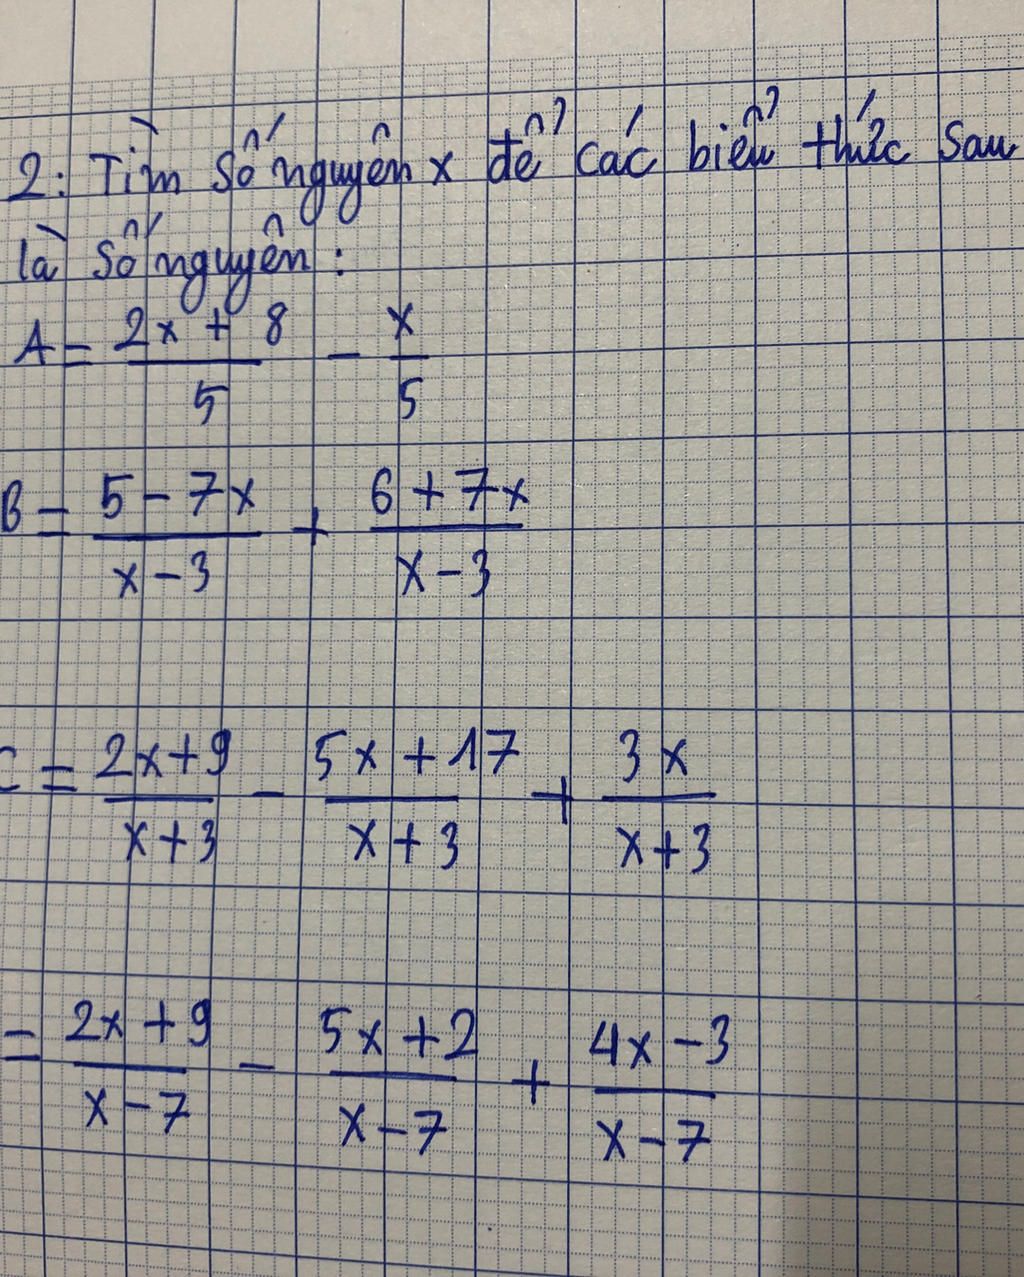 2: Tìm số nguyên x để các biểu thức sau
là số nguyên:
A = \frac{2x + 8}{5} - \frac{x}{5}
B = \frac{5 - 7x}{x - 3} + \frac{6 + 7x}{x - 3}
C = \frac{2x + 9}{x + 3} - \frac{5x + 17}{x + 3} + \frac{3x}{x + 3}
= \frac{2x + 9}{x - 7} - \frac{5x + 2}{x - 7} + \frac{4x - 3}{x - 7}